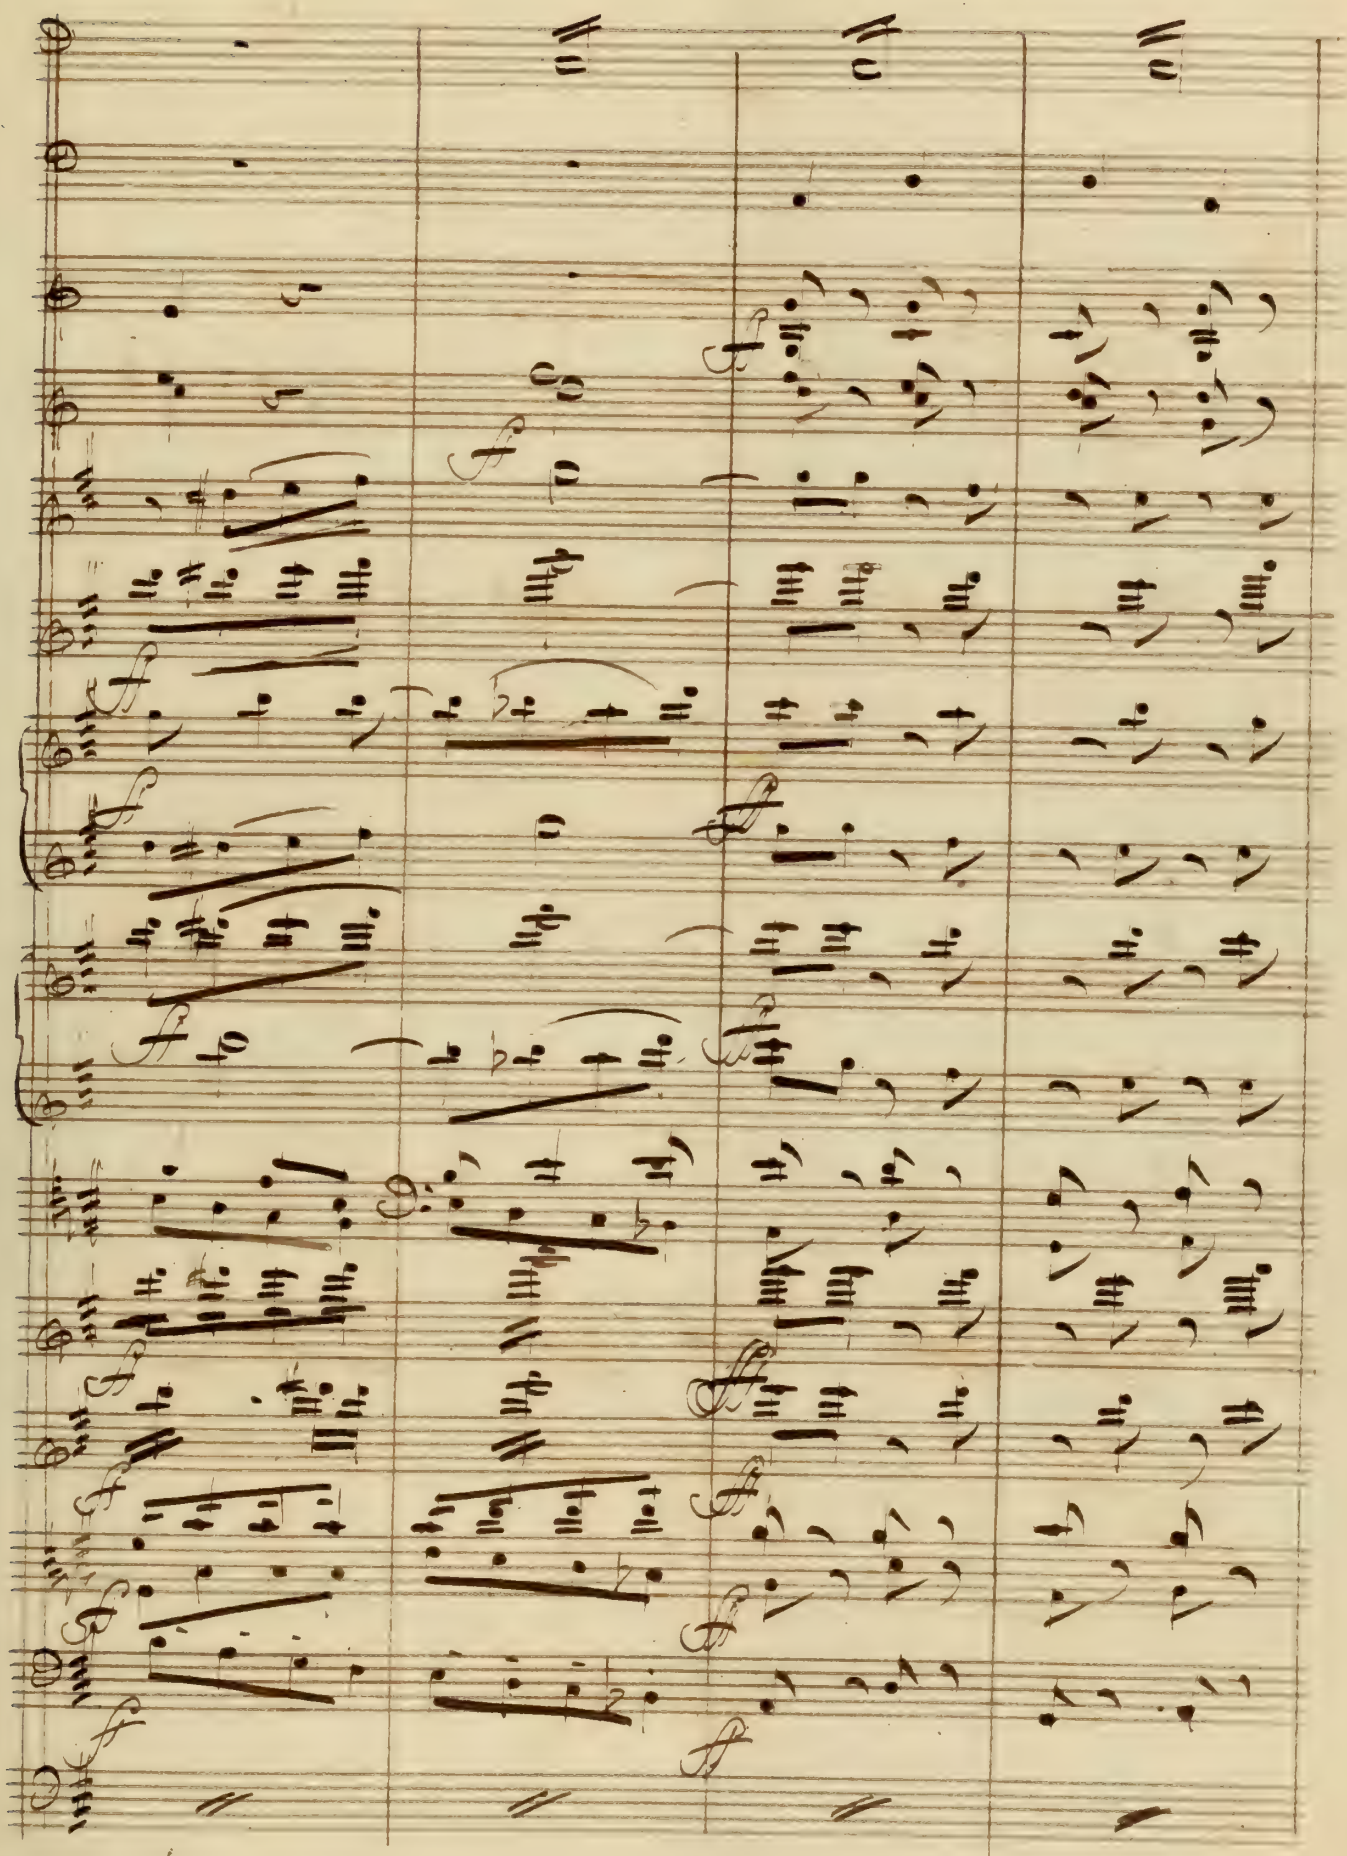 f
f
f
f
ff
f
ff
f
ff
f
ff
f
ff
f
ff